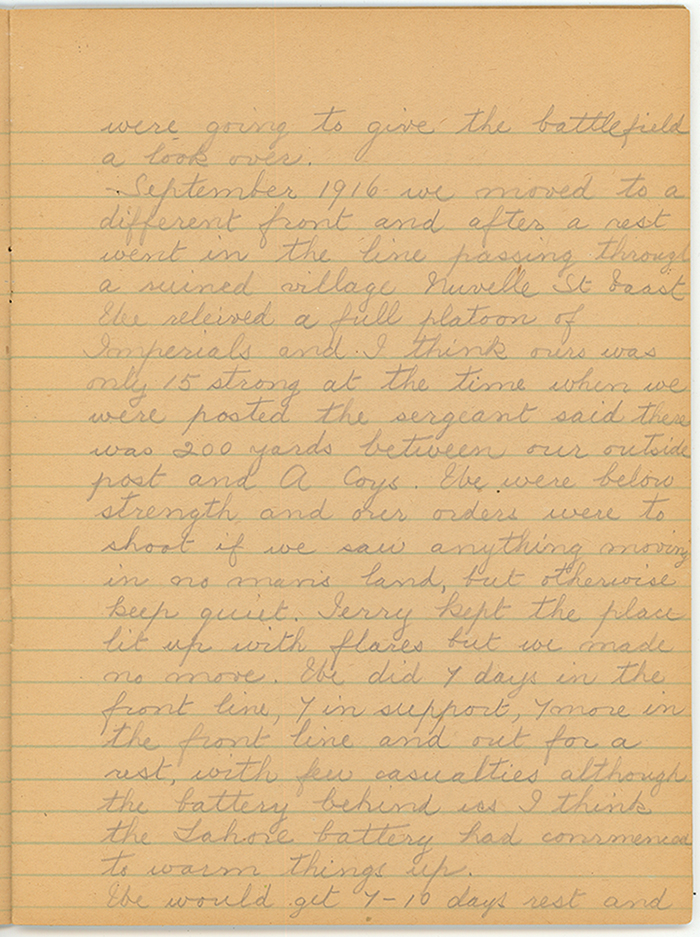 were going to give the battlefield
a look over.
- September 1916 we moved to a
different front and after a rest
went in the line passing through
a ruined village Nuvelle St Vaast
We releived a full platoon of
Imperials and I think ours was
only 15 strong at the time when we
were posted the sergeant said there
was 200 yards between our outside
post and A Coys. We were below
strength and our orders were to
shoot if we saw anything moving
in no mans land, but otherwise
keep quiet. Jerry kept the place
lit up with flares but we made
no move. We did 7 days in the
front line, 7 in support, 7 more in
the front line and out for a
rest, with few casualties although
the battery behind us I think
the Lahore battery had commenced
to warm things up.
We would get 7-10 days rest and